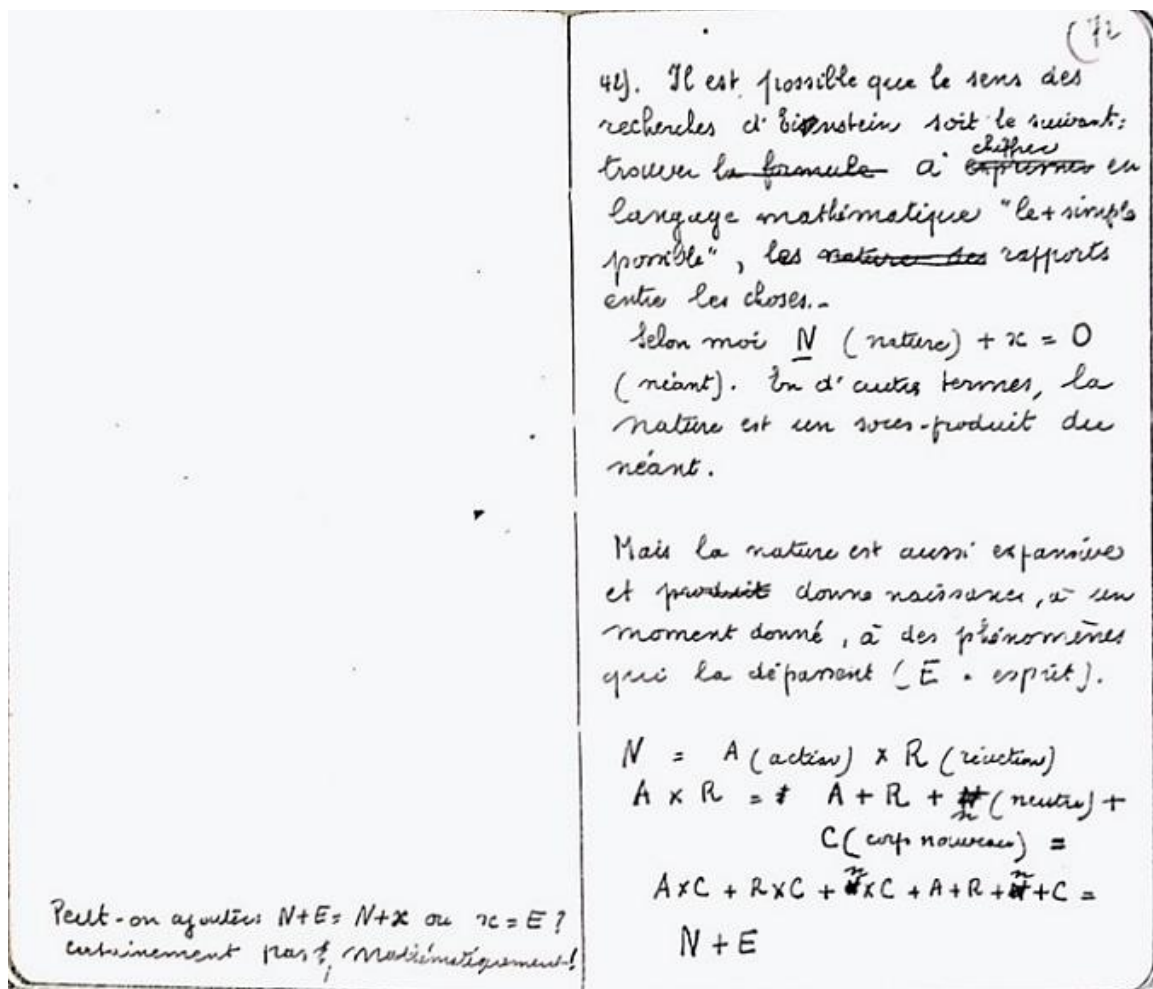 Peut-on ajouter: N+E = N+x ou x = E ?
certainement pas, mathématiquement!
(72
42). Il est possible que le sens des
recherches d'Einstein soit le suivant:
trouver la formule à exprimer chiffrer en
langage mathématique "le + simple
possible", les nature des rapports
entre les choses..
Selon moi N (nature) + x = 0
(néant). En d'autres termes, la
nature est un sous-produit du
néant.
Mais la nature est aussi expansive
et produit donne naissance, à un
moment donné, à des phénomènes
qui la dépassent (E = esprit).
N = A (action) x R (réaction)
A x R = A + R + n (neutre) +
C (corps nouveau) =
AxC + RxC + nxC + A+R+n+C =
N+E